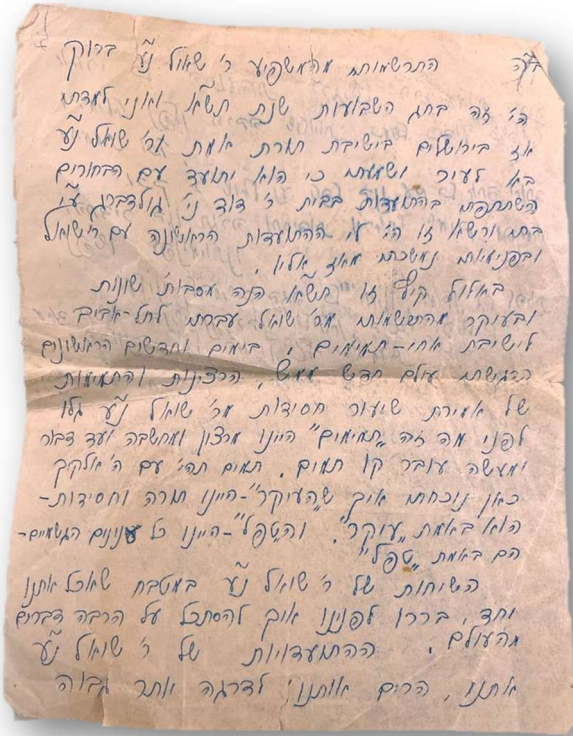 ב״ה
התרשמות מהמשפיע ר׳ שאול נ״ע ברוק
הי׳ זה בחג השבועות שנת תש״א ואני למדתי
אז בירושלים בישיבת תורת אמת ור׳ שאול נ״ע
בא לעיר ושמעתי כי הוא יתועד עם הבחורים
השתתפתי בהתועדות בבית ר׳ דוד ני׳ גולדברג ע״י
בתי ורשא זו הי׳ לי ההתועדות הראשונה עם ר׳ שאול
ובפנימיות נמשכתי מאז אליו.
באלול קיץ זו תש״א הנה מסבות שונות
ובעיקר מהתרשמות מר׳ שאול עברתי לתל-אביב
לישיבת אחי-תמימים. בימים וחדשים הראשונים
הרגשתי עולם חדש ממש, הרצינות והתמימות
של אמירת שיעור חסידות מר׳ שאול נ״ע גלו
לפני מה זה "תמימים" היינו מרצון ומחשבה ועד דבור
ומעשה עובר קו תמים. תמים תהי׳ עם ה׳ אלקיך
כאן נוכחתי איך ש"העיקר"-היינו תורה וחסידות-
הוא באמת "עיקר". וה"טפל"-היינו כל ענינים הגשמיים-
הם באמת "טפל"
השיחות של ר׳ שאול נ״ע במטבח שאכל אתנו
יחד, בררו לפנינו איך להסתכל על הרבה דברים
מהעולם. ההתועדויות של ר׳ שאול נ״ע
אתנו, הרים אותנו לדרגה יותר גבוה